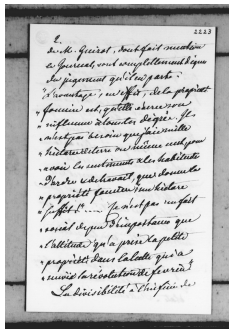 2223
2.
de M. Guizot, dont fait mention
le Journal, sont complètement dignes
du jugement qu'il en porte.
"L'avantage, en effet, de la propriété
foncière est, qu'elle exerce son
influence à tous les degrés. Il
n'est pas besoin que j'aie mille
hectares de terre ou même cent pour
avoir les sentiments & les habitudes
d'ordre & de travail, que donne la
propriété foncière; un hectare
suffit!" Ce n'est pas un fait
social de peu d'importance que
l'attitude qu'a prise la petite
propriété dans la lutte qui a
suivi la révolution de février.
La divisibilité à l'infini de